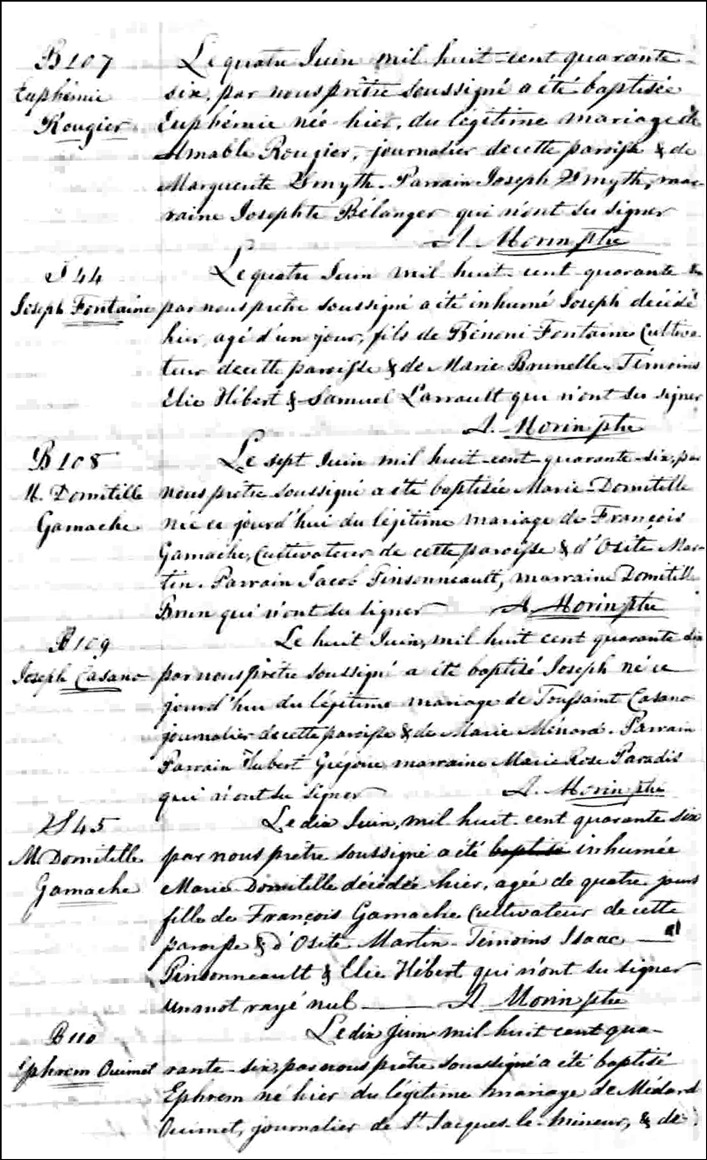 B107
Euphémie
Rougier
Le quatre Juin mil huit-cent quarante-
six, par nous prêtre soussigné a été baptisée
Euphémie née hier, du légitime mariage de
Amable Rougier, journalier de cette paroisse & de
Marguerite Smyth. Parrain Joseph Smyth, mar-
raine Josephte Bélanger qui n'ont su signer
A. Morin ptre
S44
Joseph Fontaine
Le quatre Juin mil huit-cent-quarante &
par nous prêtre soussigné a été inhumé Joseph décédé
hier, agé d'un jour, fils de Bénoni Fontaine Cultiva-
teur de cette paroisse & de Marie Brunelle. Témoins
Elie Hébert & Samuel Larrault qui n'ont su signer
A. Morin ptre
B108
M. Domitille
Gamache
Le sept Juin mil huit-cent-quarante-six, par
nous prêtre soussigné a été baptisée Marie-Domitille
née ce jourd'hui du légitime mariage de François
Gamache, Cultivateur de cette paroisse & d'Osite Mar-
tin. Parrain Jacob Pinsonneault, marraine Domitille
Brun qui n'ont su signer A. Morin ptre
B109
Joseph Casano
Le huit Juin, mil huit cent quarante six
par nous Prêtre soussigné a été baptisé Joseph né ce
jourd'hui du légitime mariage de Toussaint Casano
journalier de cette paroisse & de Marie Ménard. Parrain
Parrain Hubert Grégoire marraine Marie Rose Paradis
qui n'ont su signer A. Morin ptre
S45
M. Domitille
Gamache
Le dix Juin, mil huit cent quarante six
par nous prêtre soussigné a été baptisé inhumée
Marie Domitille décédée hier, agée de quatre jours
fille de François Gamache Cultivateur de cette
paroisse & d'Osite Martin. Témoins Isaac
Pinsonneault & Elie Hébert qui n'ont su signer
un mot rayé nul A. Morin ptre
B110
Ephrem Ouimet
Le dix Juin mil-huit cent qua-
rante-six, par nous prêtre soussigné a été baptisé
Ephrem né hier du légitime mariage de Médard
Ouimet, journalier de St. Jacques-le-mineur, & de